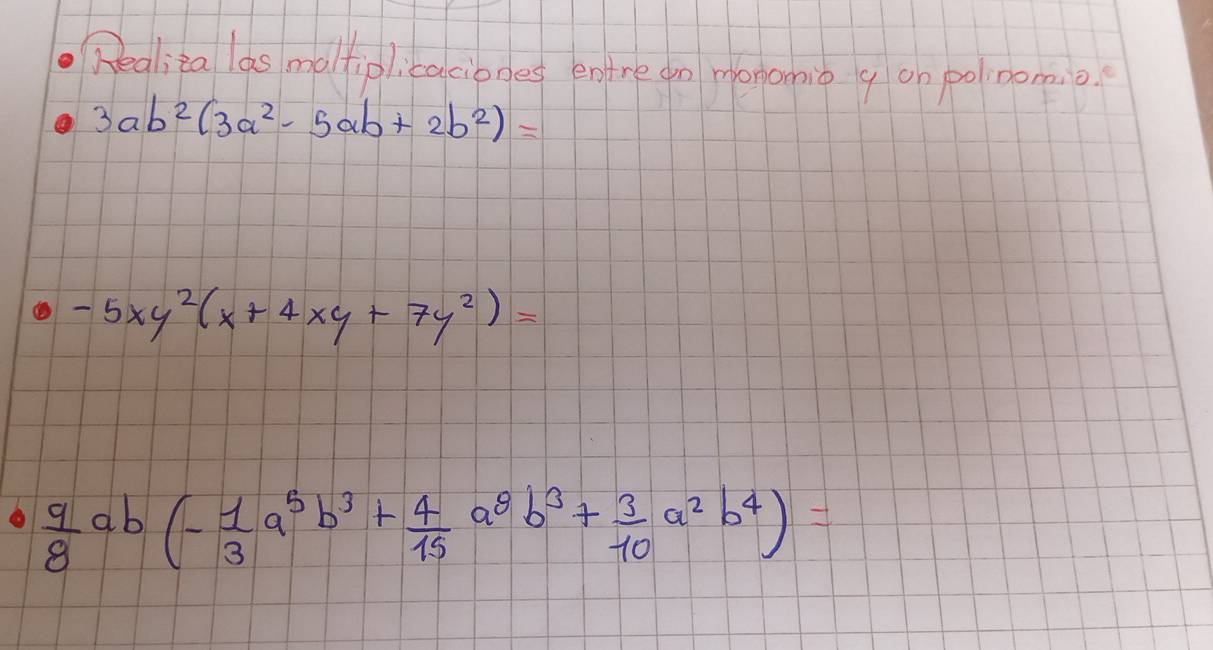 • Realiza las moltiplicaciones entre un monomio y on polinomio.
• 3ab²(3a² - 5ab + 2b²) =
• -5xy²(x + 4xy + 7y²) =
• 9/8 ab (-1/3 a⁵b³ + 4/15 a⁸b³ + 3/10 a²b⁴) =